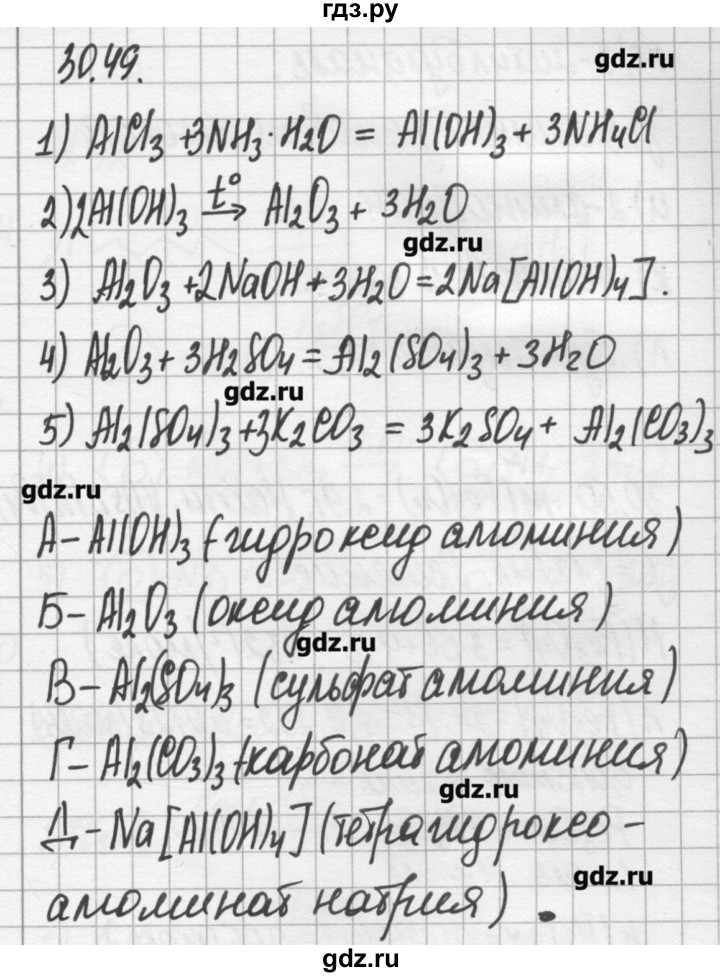 гдз.ру
30.49.
gdz.ru
1) AlCl₃ + 3NH₃·H₂O = Al(OH)₃ + 3NH₄Cl
2) 2Al(OH)₃ t°→ Al₂O₃ + 3H₂O
gdz.ru
3) Al₂O₃ + 2NaOH + 3H₂O = 2Na[Al(OH)₄].
4) Al₂O₃ + 3H₂SO₄ = Al₂(SO₄)₃ + 3H₂O
gdz.ru
5) Al₂(SO₄)₃ + 3K₂CO₃ = 3K₂SO₄ + Al₂(CO₃)₃
gdz.ru
А – Al(OH)₃ (гидроксид алюминия)
Б – Al₂O₃ (оксид алюминия)
gdz.ru
В – Al₂(SO₄)₃ (сульфат алюминия)
Г – Al₂(CO₃)₃ (карбонат алюминия)
gdz.ru
Д – Na[Al(OH)₄] (тетрагидроксо-
gdz.ru
алюминат натрия).
gdz.ru